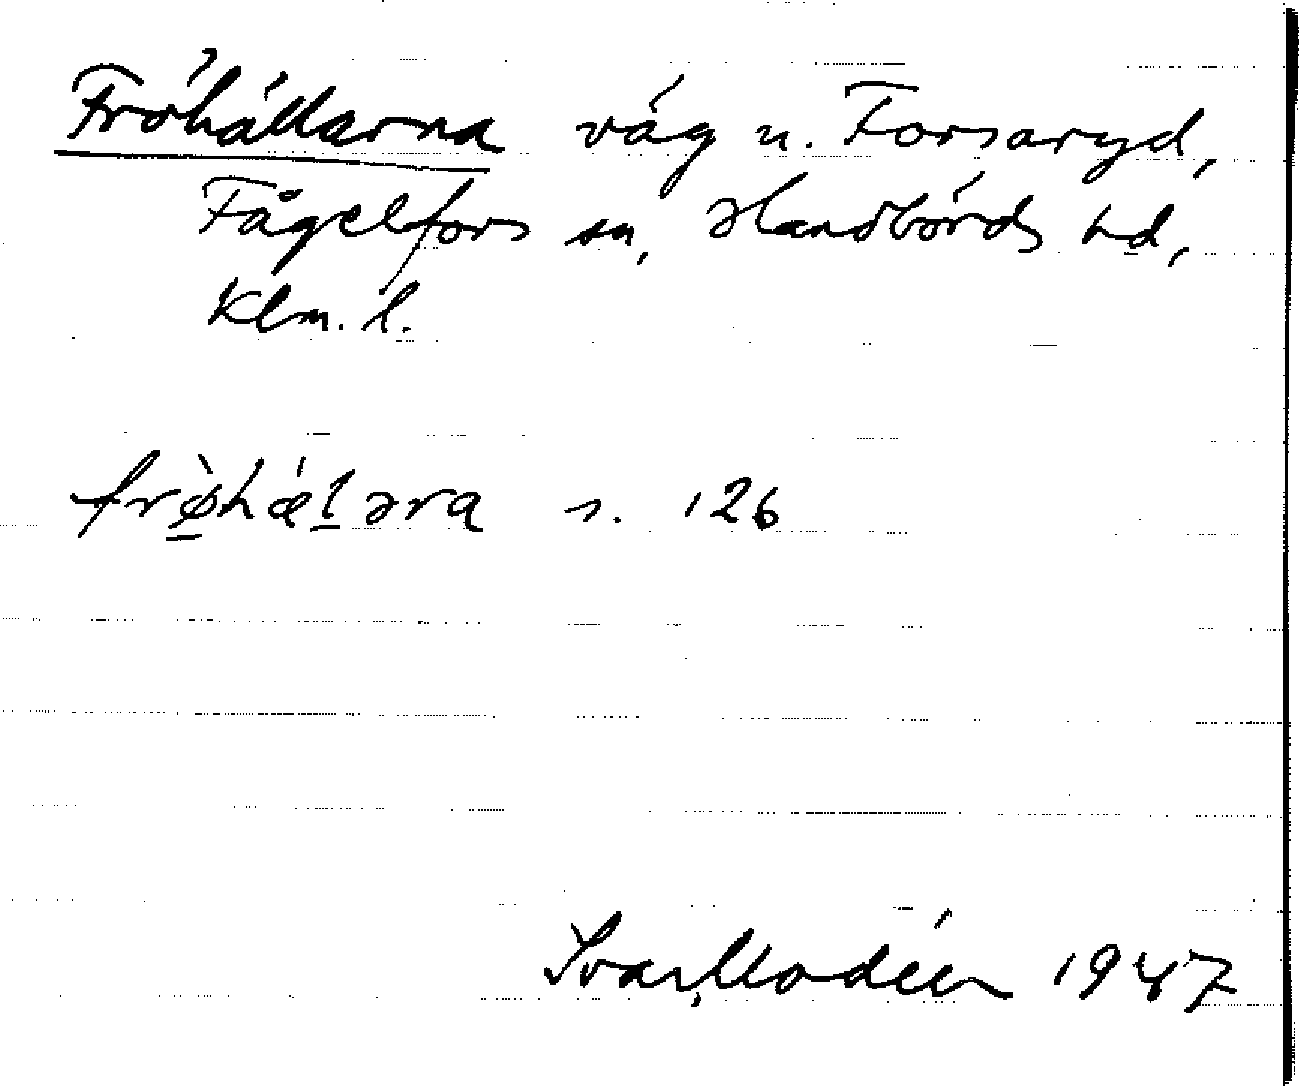 Fröhällarna väg u. Forsaryd,
Fågelfors sn, Handbörds hd,
Klm. l.
frø̀hǽlǝra s. 126
Ivar Modéer 1947